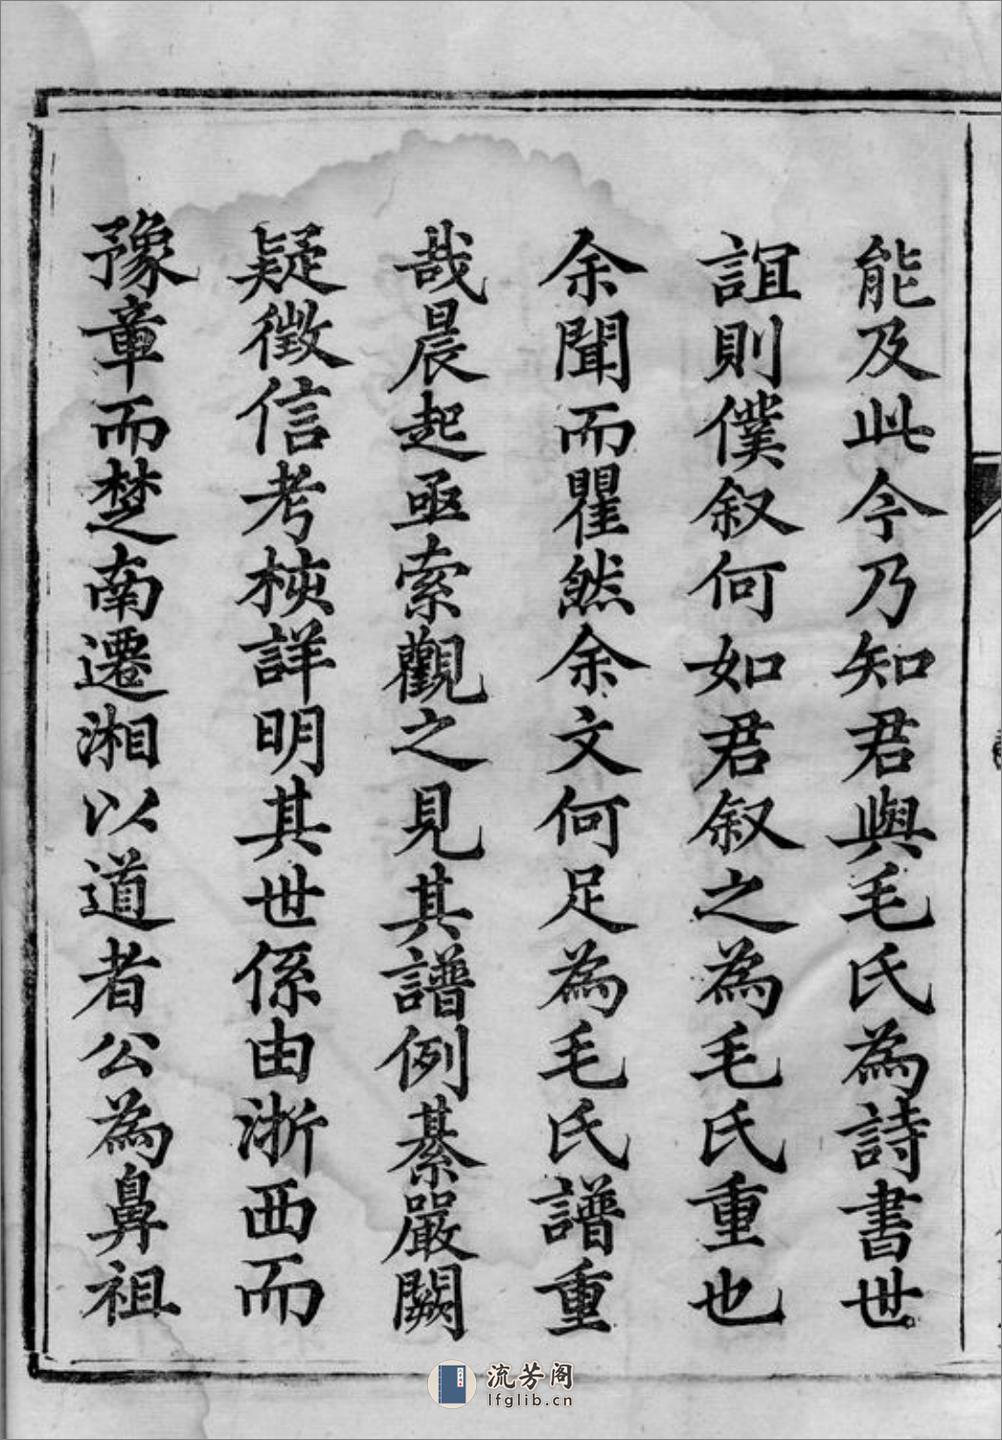 能及此今乃知君與毛氏為詩書世
誼則僕叙何如君叙之為毛氏重也
余聞而瞿然余文何足為毛氏譜重
哉晨起亟索觀之見其譜例綦嚴闕
疑徵信考核詳明其世係由浙西而
豫章而楚南遷湘以道者公為鼻祖
流芳阁
lfglib.cn